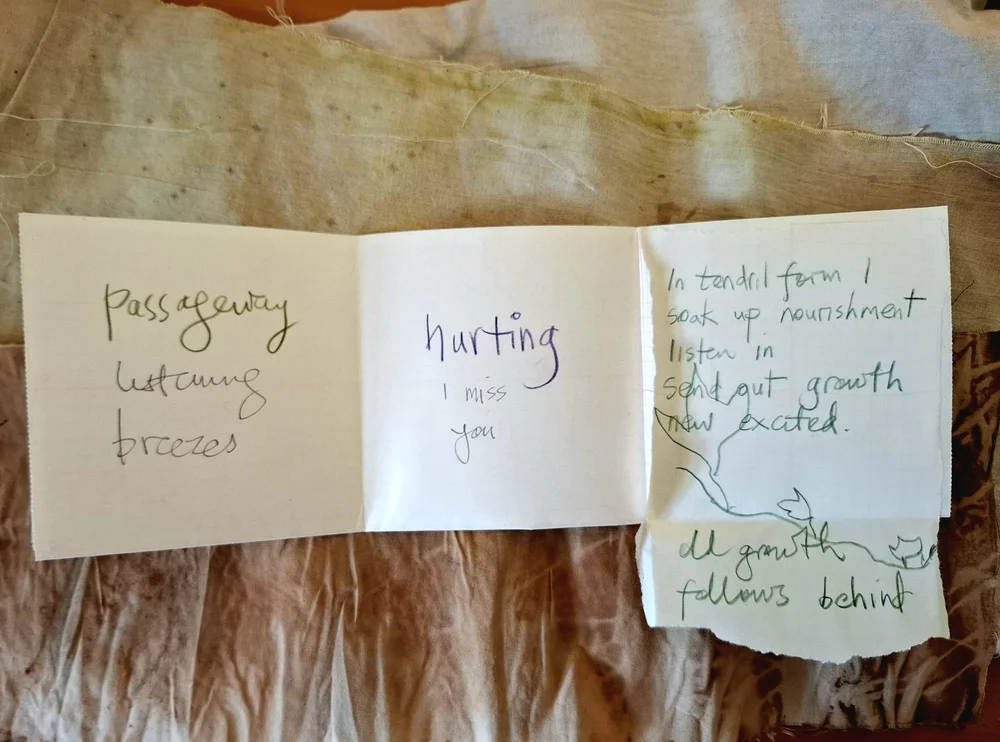 passageway
listening
breezes
hurting
I miss
you
In tendril form I
soak up nourishment
listen in
send out growth
new excited.
old growth
follows behind